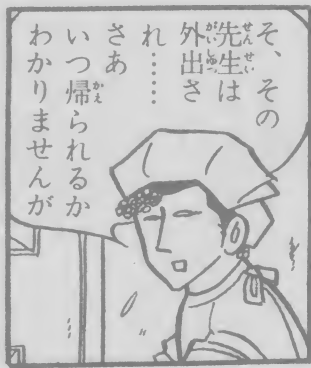 そ、その
先生は
外出さ
れ……
さあ
いつ帰られるか
わかりませんが